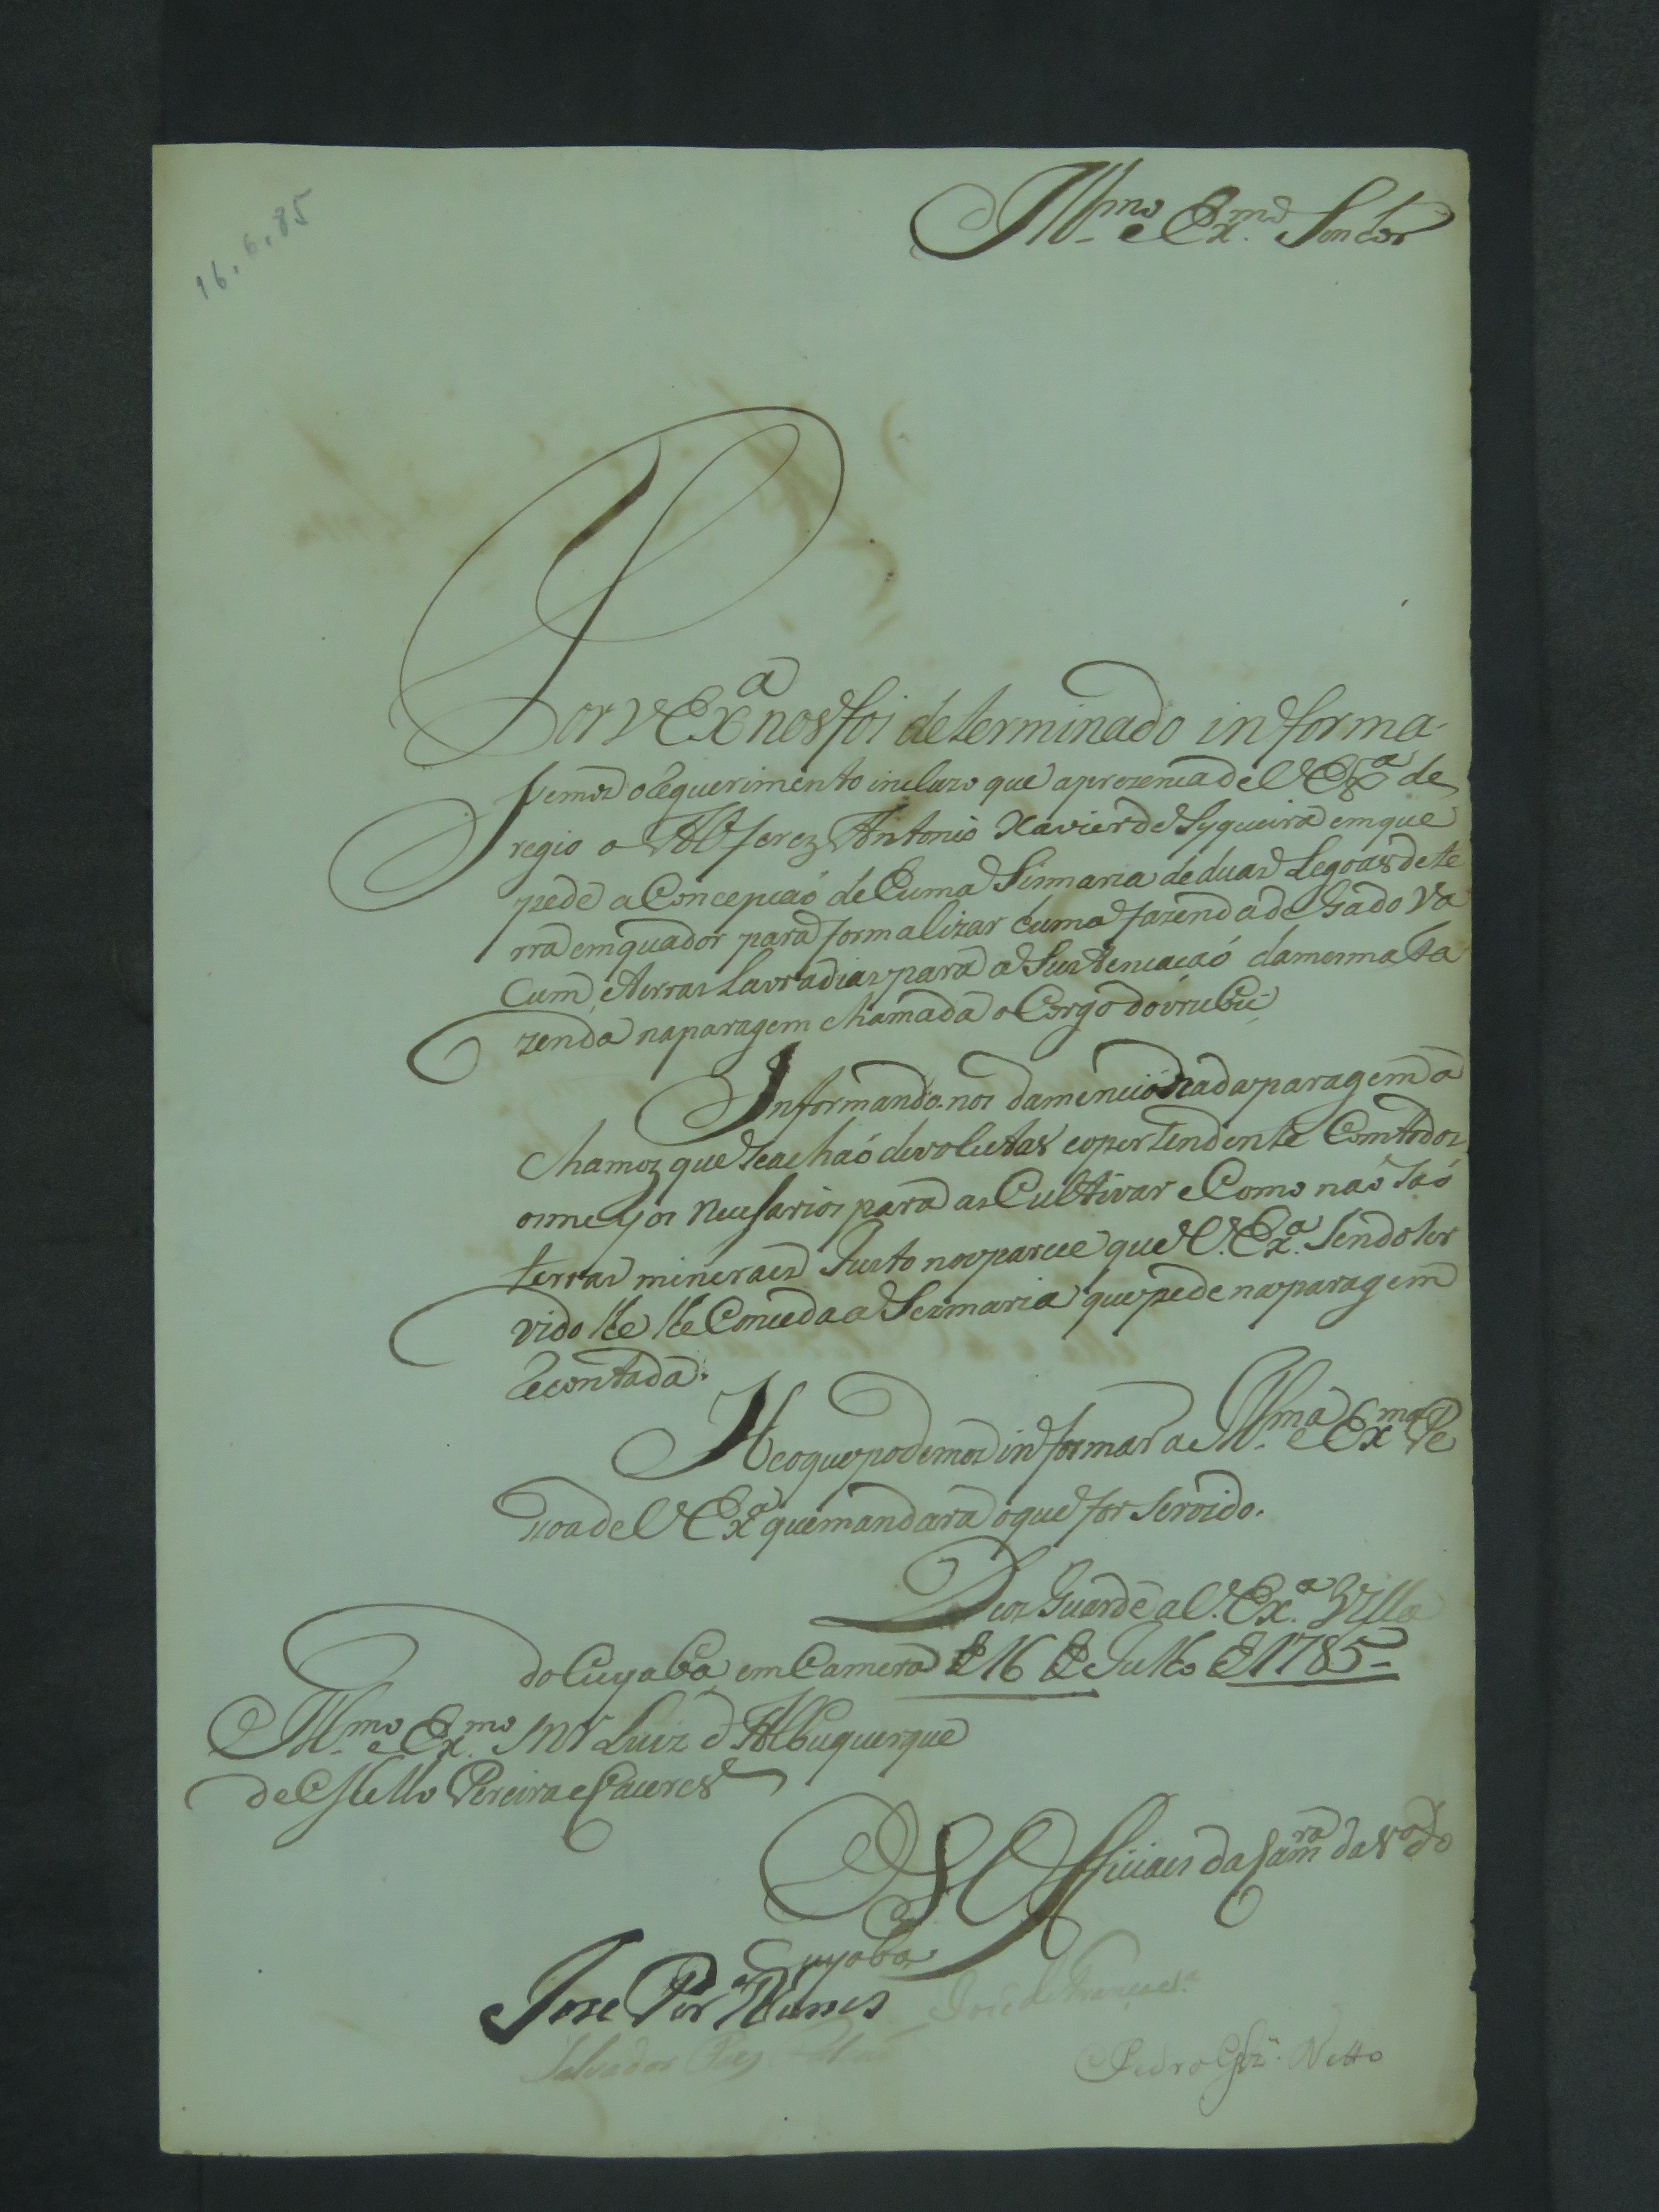 16.6.85
Illmo e Exmo Senhor
Por VExa nos foi determinado informa-
semos o Requerimento incluzo que aprezenca de VExa de
regio o Alferez Antonio Xavier de Syqueira em que
pede a Concepcaó de huma Sismaria de duas Legoas de te
rra em quador para formalizar huma fazenda de Gado Va
Cum, e terras Lavradias para a Sustencacaó da mesma fa
zenda na paragem chamada o Corgo do Urubu
Informando-nos da mencionada paragem a
chamos que se achaó devolutas e o pertendente Com todos
os meyos necesarios para as Cultivar e Como naó saó
terras mineraes Justo nos parece que V.Exa. Sendo Ser
vido lhe lhe Conceda a Sezmaria que pede na paragem
Recontada.
He o que podemos informar a Illma e Exma Pe
ssoa de VExa que mandará o que for Servido.
Deos Guarde a V.Exa. Villa
do Cuyabá em Camera de 16 de Julho de 1785
Illmo e Exmo Snr Luiz d Albuquerque
de Mello Pereira e Caceres
Os Officiaes da Camra da Va do
Cuyaba
Joze Pera Nunes José
Salvador Paes
Pedro Glz. Netto